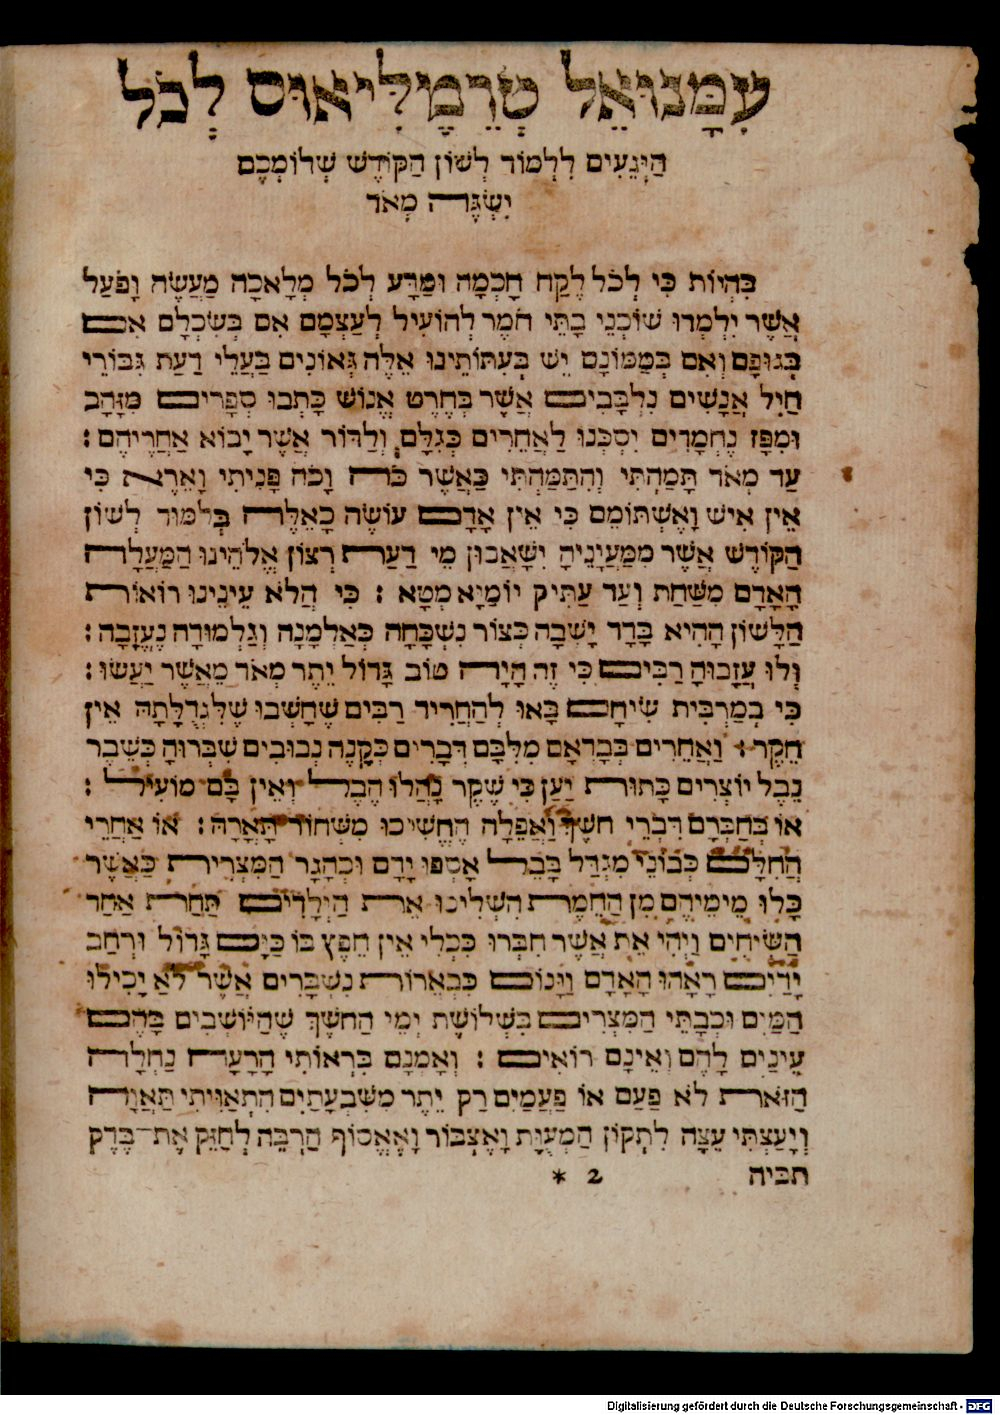 עִמָּנוּאֵל טְרֵמֶלִּיאוּס לְכֹל
הַיְּגֵעִים לִלְמוֹד לְשׁוֹן הַקּוֹדֶשׁ שְׁלוֹמְכֶם
יִשְׂגֶּה מְאֹד
בִּהְיוֹת כִּי לְכֹל לֶקַח חָכְמָה וּמַדָּע לְכֹל מְלָאכָה מַעֲשֶׂה וָפֹעַל
אֲשֶׁר יִלְמְדוּ שׁוֹכְנֵי בָתֵּי חֹמֶר לְהוֹעִיל לְעַצְמָם אִם בְּשִׂכְלָם אִם
בְּגוּפָם וְאִם בְּמַמּוֹנָם יֵשׁ בְּעִתּוֹתֵינוּ אֵלֶּה גְּאוֹנִים בַּעֲלֵי דַעַת גִּבּוֹרֵי
חַיִל אֲנָשִׁים נִלְבָּבִים אֲשֶׁר בְּחֶרֶט אֱנוֹשׁ כָּתְבוּ סְפָרִים מִזָּהָב
וּמִפָּז נֶחְמָדִים יִסְכְּנוּ לַאֲחֵרִים כְּגִלָּם וְלַדּוֹר אֲשֶׁר יָבוֹא אַחֲרֵיהֶם :
עַד מְאֹד תָּמַהְתִּי וְהִתַּמַּהְתִּי כַּאֲשֶׁר כֹּה וָכֹה פָּנִיתִי וָאֵרֶא כִּי
אֵין אִישׁ וָאֶשְׁתּוֹמֵם כִּי אֵין אָדָם עוֹשֶׂה כָאֵלֶּה בְּלִמּוּד לְשׁוֹן
הַקּוֹדֶשׁ אֲשֶׁר מִמַּעֲיָנֶיהָ יִשָּׁאֲבוּן מֵי דַעַת רְצוֹן אֱלֹהֵינוּ הַמַּעֲלָה
הָאָדָם מִשַּׁחַת וְעַד עַתִּיק יוֹמַיָּא מְטָא : כִּי הֲלֹא עֵינֵינוּ רוֹאוֹת
הַלָּשׁוֹן הַהִיא בָּדָד יָשְׁבָה כְּצוֹר נִשְׁכָּחָה כְּאַלְמָנָה וְגַלְמוּדָה נֶעֱזָבָה :
וְלוּ עֲזָבוּהָ רַבִּים כִּי זֶה הָיָה טוֹב גָּדוֹל יֵתֶר מְאֹד מֵאֲשֶׁר יַעֲשׂוּ :
כִּי בְמַרְבִּית שִׂיחָם בָּאוּ לְהַחֲרִיד רַבִּים שֶׁחָשְׁבוּ שֶׁלִּגְדֻלָּתָהּ אֵין
חֵקֶר : וַאֲחֵרִים בְּבָדְאָם מִלִּבָּם דְּבָרִים כְּקָנֶה נְבוּבִים שִׁבְּרוּהָ כְּשֵׁבֶר
נֵבֶל יוֹצְרִים כָּתוּת יַעַן כִּי שֶׁקֶר נָחֲלוּ הֶבֶל וְאֵין בָּם מוֹעִיל :
אוֹ בְּחַבְּרָם דִּבְרֵי חֹשֶׁךְ וַאֲפֵלָה הֶחֱשִׁיכוּ מִשְּׁחוֹר תָּאֳרָהּ : אוֹ אַחֲרֵי
הֲחִלָּם כְּבוֹנֵי מִגְדַּל בָּבֶל אָסְפוּ יָדָם וּכְהָגָר הַמִּצְרִית כַּאֲשֶׁר
כָּלוּ מֵימֵיהֶם מִן הַחֵמֶת הִשְׁלִיכוּ אֵת הַיְלָדִים תַּחַת אַחַד
הַשִּׂיחִים וַיְהִי אֵת אֲשֶׁר חִבְּרוּ כִּכְלִי אֵין חֵפֶץ בּוֹ כַּיָּם גָּדוֹל וּרְחַב
יָדַיִם רָאָהוּ הָאָדָם וַיָּנוֹס כִּבְאֵרוֹת נִשְׁבָּרִים אֲשֶׁר לֹא יָכִילוּ
הַמַּיִם וּכְבָתֵּי הַמִּצְרִים בִּשְׁלוֹשֶׁת יְמֵי הַחֹשֶׁךְ שֶׁהַיּוֹשְׁבִים בָּהֶם
עֵינַיִם לָהֶם וְאֵינָם רוֹאִים : וְאָמְנָם בִּרְאוֹתִי הָרָעָה נַחְלָה
הַזֹּאת לֹא פַעַם אוֹ פַעֲמַיִם רַק יֵתֶר מִשִּׁבְעָתַיִם הִתְאַוֵּיתִי תַּאֲוָה
וְיָעַצְתִּי עֵצָה לְתִקּוֹן הַמְעֻוָּת וָאֶצְבּוֹר וָאֶאֱסוֹף הַרְבֵּה לְחַזֵּק אֶת־בֶּדֶק
הבית
2 *
Digitalisierung gefördert durch die Deutsche Forschungsgemeinschaft - DFG